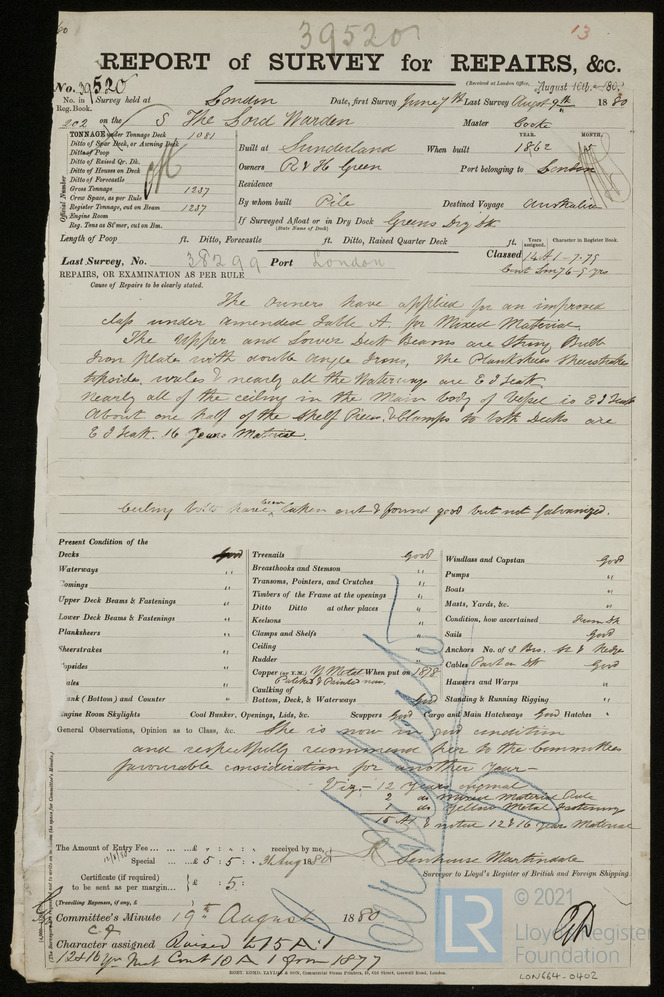 39520
13
REPORT of SURVEY for REPAIRS, &c.
(Received at London Office, August 10th 1880
No. 39520
No. in Reg. Book. Survey held at London Date, first Survey June 7th Last Survey Augst 9th 1880
202 on the S The Lord Warden Master Cooke
TONNAGE under Tonnage Deck 1081
Ditto of Spar Deck, or Awning Deck
Ditto of Poop
Ditto of Raised Qr. Dk.
Ditto of Houses on Deck
Ditto of Forecastle
Gross Tonnage 1237
Crew Space, as per Rule
Register Tonnage, cut on Beam 1237
Engine Room
Reg. Tons as St'mer, cut on Bm.
Official Number
YEAR. MONTH.
Built at Sunderland When built 1862 5
Owners R & H Green Port belonging to London
Residence
By whom built Pile Destined Voyage Australia
If Surveyed Afloat or in Dry Dock Greens Dry Dk
(State Name of Dock)
Length of Poop ft. Ditto, Forecastle ft. Ditto, Raised Quarter Deck ft.
Years assigned. Character in Register Book.
Last Survey, No. 38299 Port London
Classed 12 A 1 - 7.75
Cont Lon 76 - 5 yrs
REPAIRS, OR EXAMINATION AS PER RULE
Cause of Repairs to be clearly stated.
The owners have applied for an improved
class under amended Table A. for Mixed Material
The Upper and Lower Deck Beams are Strong Bulb
Iron plate with double Angle Irons, The Planksheers Sheerstrakes
topsides, wales & nearly all the Waterways are E I Teak.
nearly all of the ceiling in the Main body of Vessel is E I Teak
About one half of the Shelf Pieces & Clamps to both Decks are
E I Teak. 16 Years Material.
Ceiling bolts have been taken out & found good but not galvanized.
Present Condition of the
Decks Good
Waterways "
Comings "
Upper Deck Beams & Fastenings "
Lower Deck Beams & Fastenings "
Planksheers "
Sheerstrakes "
Topsides "
Wales "
Plank (Bottom) and Counter "
Treenails Good
Breasthooks and Stemson "
Transoms, Pointers, and Crutches "
Timbers of the Frame at the openings "
Ditto Ditto at other places "
Keelsons "
Clamps and Shelfs "
Ceiling "
Rudder "
Copper (or Y.M.) Y Metal When put on 1878
Patched & Painted now.
Caulking of
Bottom, Deck, & Waterways Good
Windlass and Capstan Good
Pumps "
Boats "
Masts, Yards, &c. "
Condition, how ascertained From Dk
Sails Good
Anchors No. of 3 Brs. St & Kedge
Cables Part on Dk Good
Hawsers and Warps "
Standing & Running Rigging "
Engine Room Skylights Coal Bunker, Openings, Lids, &c. Scuppers Good Cargo and Main Hatchways Good Hatches "
General Observations, Opinion as to Class, &c. She is now in good condition
and respectfully recommend her to the Committees
favourable consideration for another year -
Viz - 12 Years original
2 do Mixed Material Rule
1 do Yellow Metal Fastening
15 A1 & noted 12 & 16 Years Material
The Amount of Entry Fee ... £ : : received by me,
Special ... £ 5 : 5 : Aug 1880
Certificate (if required) to be sent as per margin... £ : 5 :
(Travelling Expenses, if any, £ )
Senhouse Martindale
Surveyor to Lloyd's Register of British and Foreign Shipping
Committee's Minute 19th August 1880
Character assigned Raised to 15 A.1
12 & 16 yrs Mat Cont 10 A 1 from 1877
RORY. KOMD. TAYLOR & SON, Commercial Steam Printers, 19, Old Street, Goswell Road, London.
LR
© 2021
Lloyd's Register
Foundation
LON664-0402